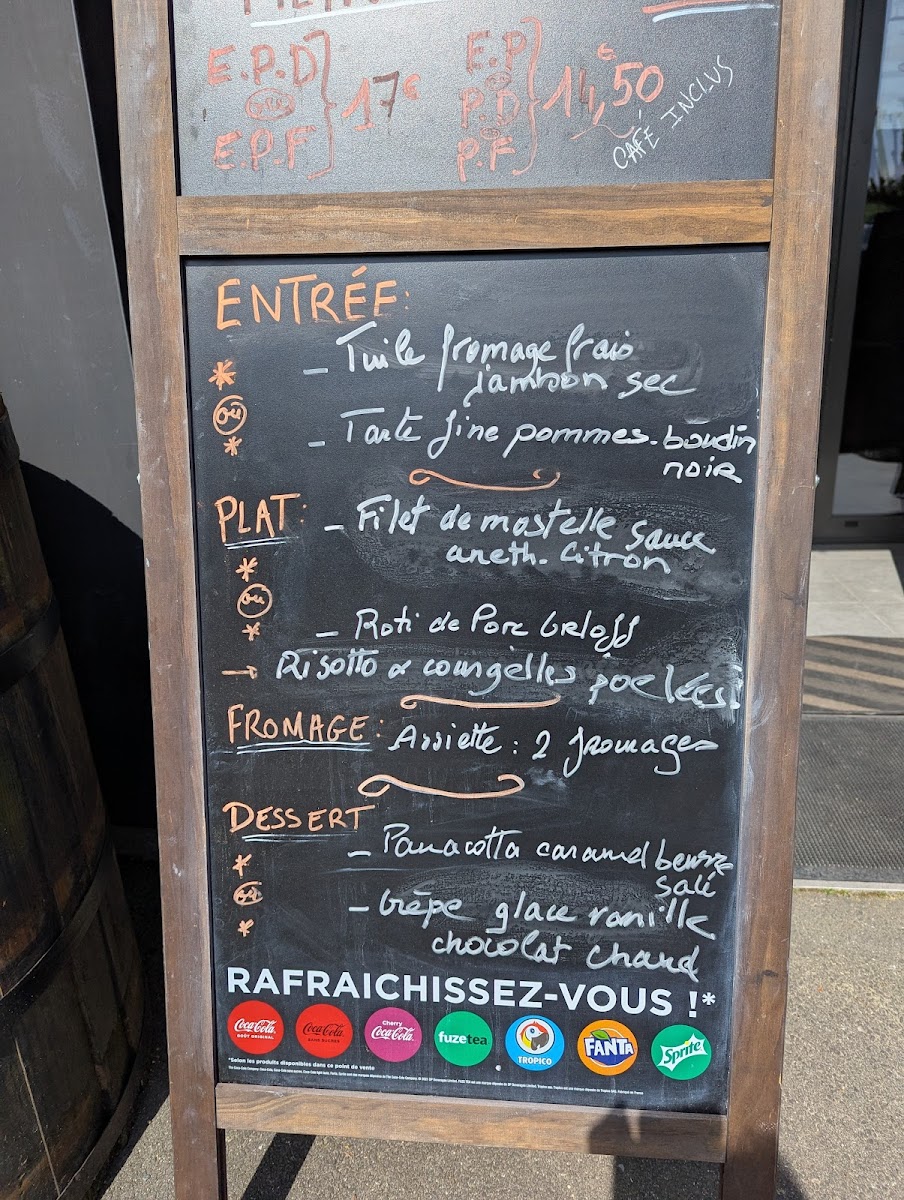 E.P.D
ou
E.P.F
17€
E.P
ou
P.D
ou
P.F
14,50€
CAFÉ INCLUS
ENTRÉE:
- Tuile fromage frais
jambon sec
ou
- Tarte fine pommes. boudin
noir
PLAT:
- Filet de mostelle sauce
aneth. Citron
ou
- Roti de Porc Orloff
→ Risotto & courgettes poelées!
FROMAGE: Assiette: 2 fromages
DESSERT
- Panacotta caramel beurre
salé
ou
- Crêpe glace vanille
chocolat chaud
RAFRAICHISSEZ-VOUS !*
Coca-Cola GOÛT ORIGINAL
Coca-Cola SANS SUCRES
Cherry Coca-Cola
fuzetea
TROPICO
FANTA
Sprite
*Selon les produits disponibles dans ce point de vente